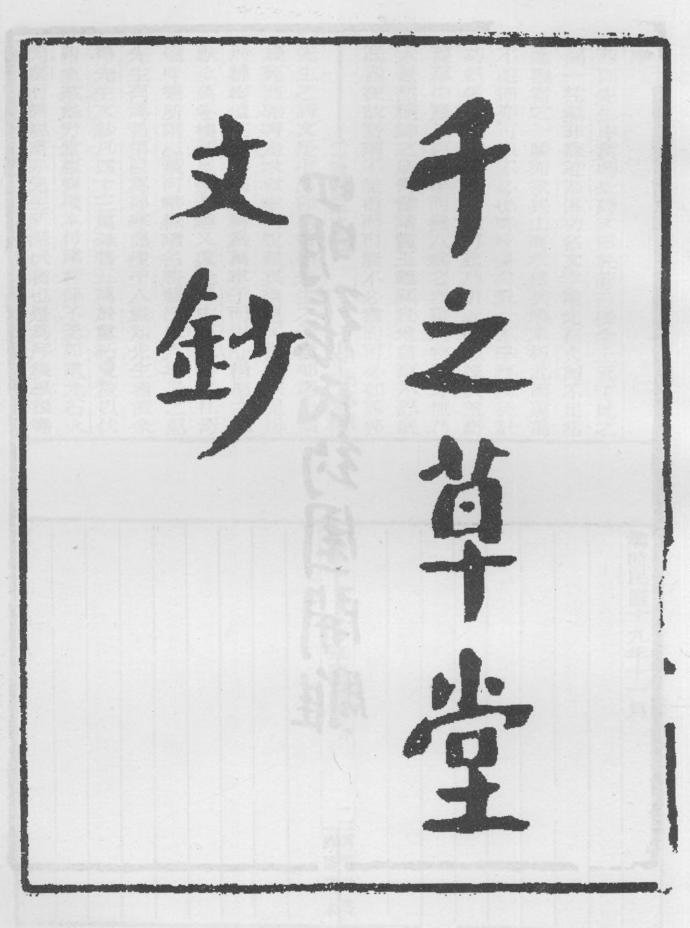 千之草堂
文鈔